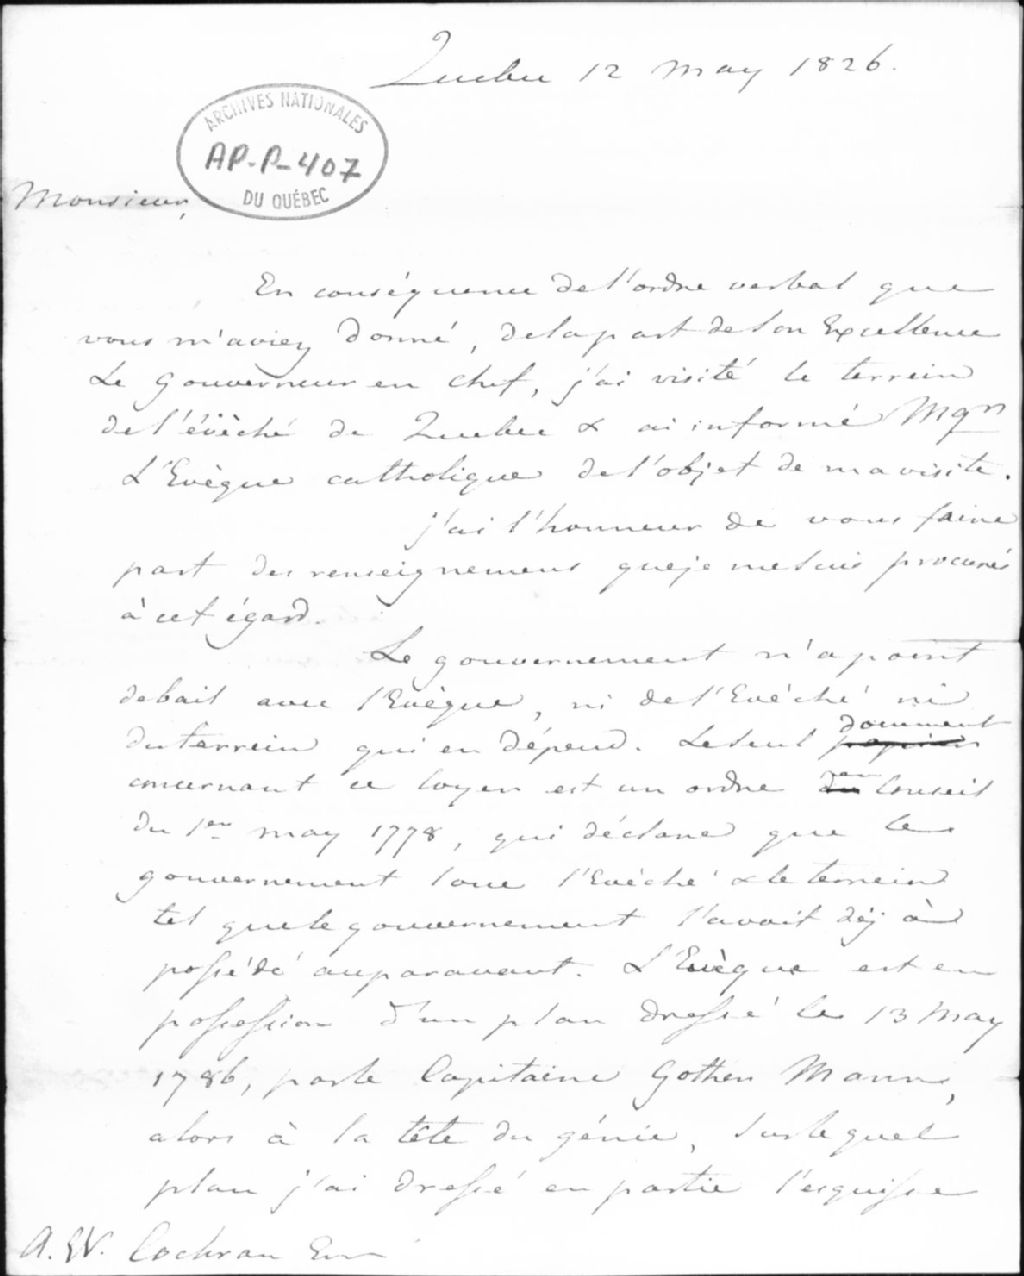 Quebec 12 May 1826.
ARCHIVES NATIONALES
AP-P-407
DU QUÉBEC
Monsieur,
En conséquence de l'ordre verbal que
vous m'aviez donné, de la part de Son Excellence
Le Gouverneur en chef, j'ai visité le terrein
de l'évêché de Quebec & ai informé Mgr
L'Evèque catholique de l'objet de ma visite.
j'ai l'honneur de vous faire
part des renseignemens que je me suis procurés
à cet égard.
Le gouvernement n'a point
de bail avec l'Evèque, ni de l'Evêché ni
du terrein qui en dépend. Le seul document
concernant ce loyer est un ordre en Conseil
du 1er may 1778, qui déclare que le
gouvernement loue l'Evêché & le terrein
tel que le gouvernement l'avoit déjà
possédé auparavant. L'Evèque est en
possession d'un plan dressé le 13 May
1786, par le Capitaine Gother Mann,
alors à la tête du génie, sur lequel
plan j'ai dressé en partie l'esquisse
A. W. Cochran